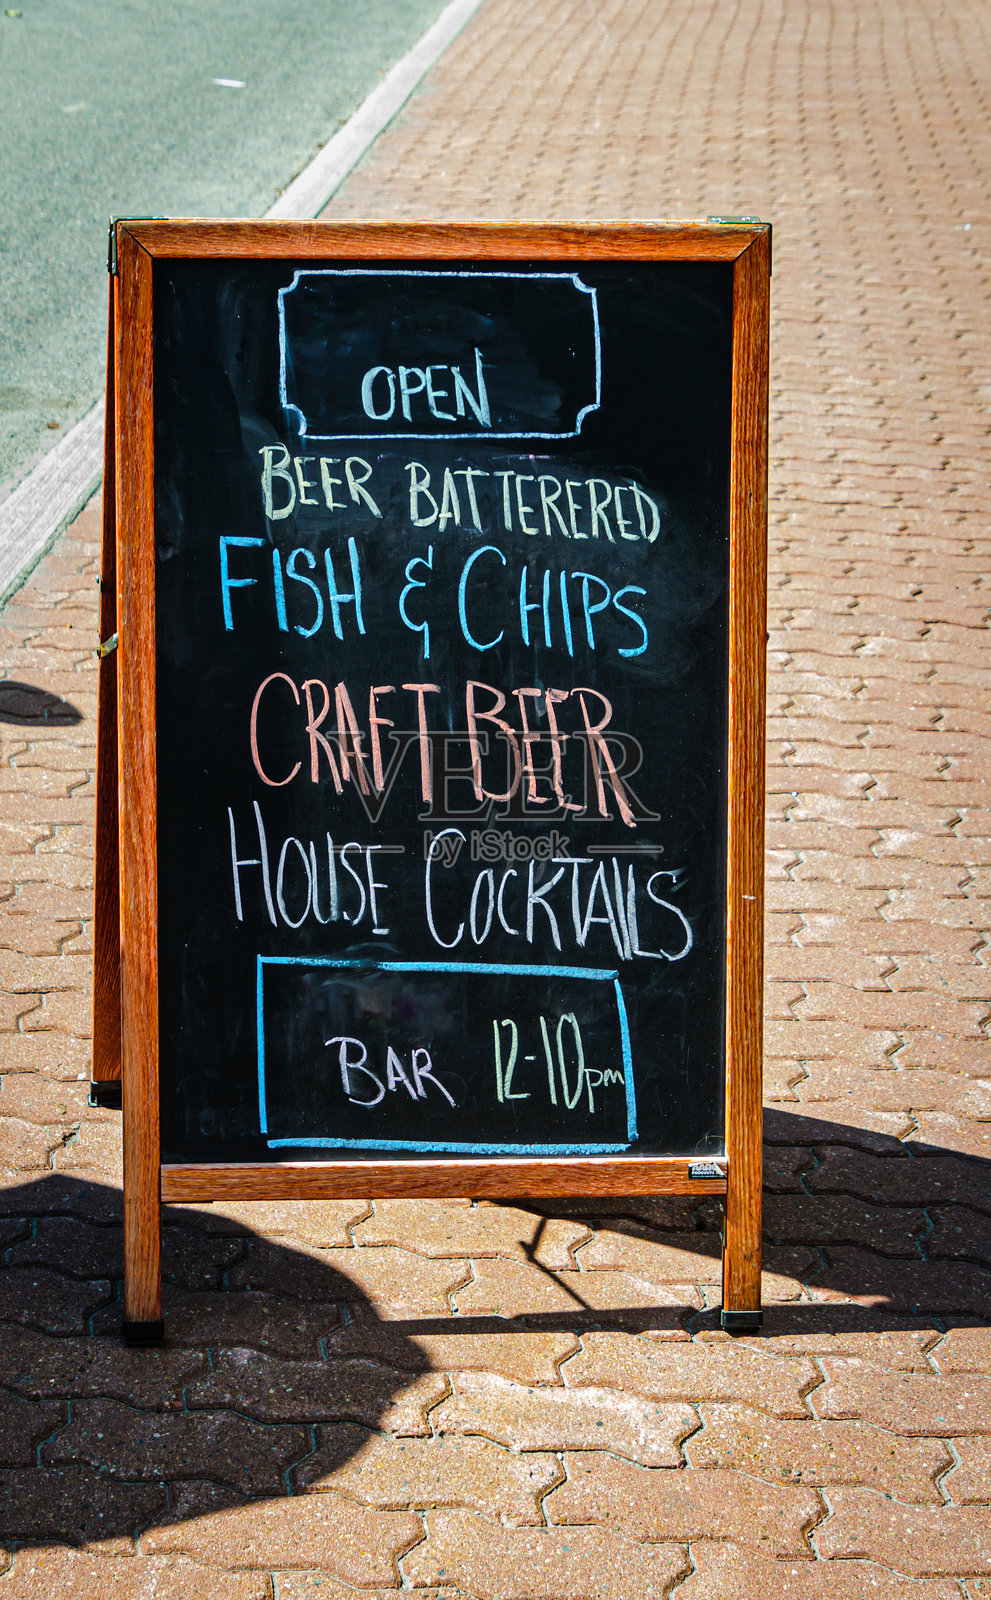 OPEN
BEER BATTERERED
FISH & CHIPS
CRAFT BEER
VEER
by iStock
HOUSE COCKTAILS
BAR 12-10pm